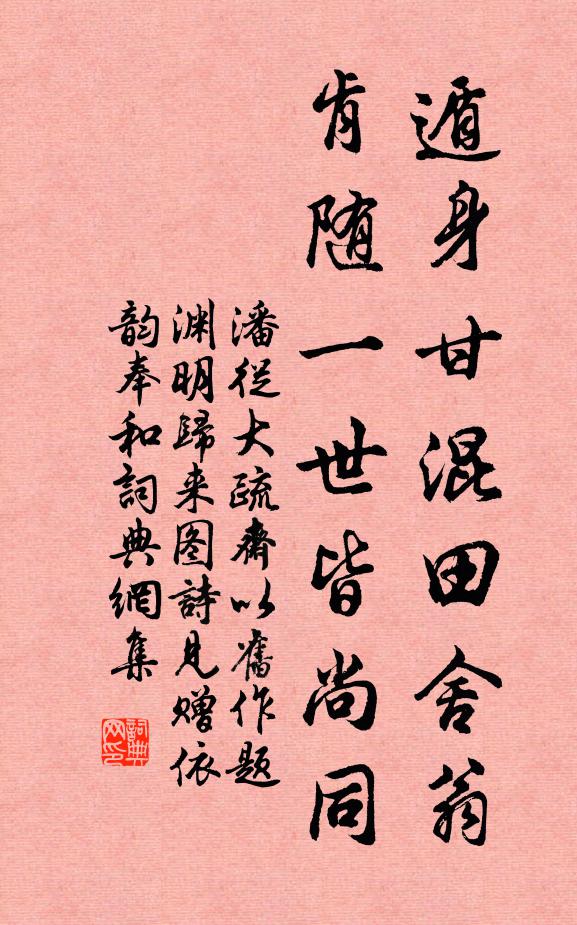 遁身甘混田舍翁
肯随一世皆尚同
潘從大疏齋以舊作題
渊明歸来图詩見赠依
韵奉和詞典網集
詞典网印